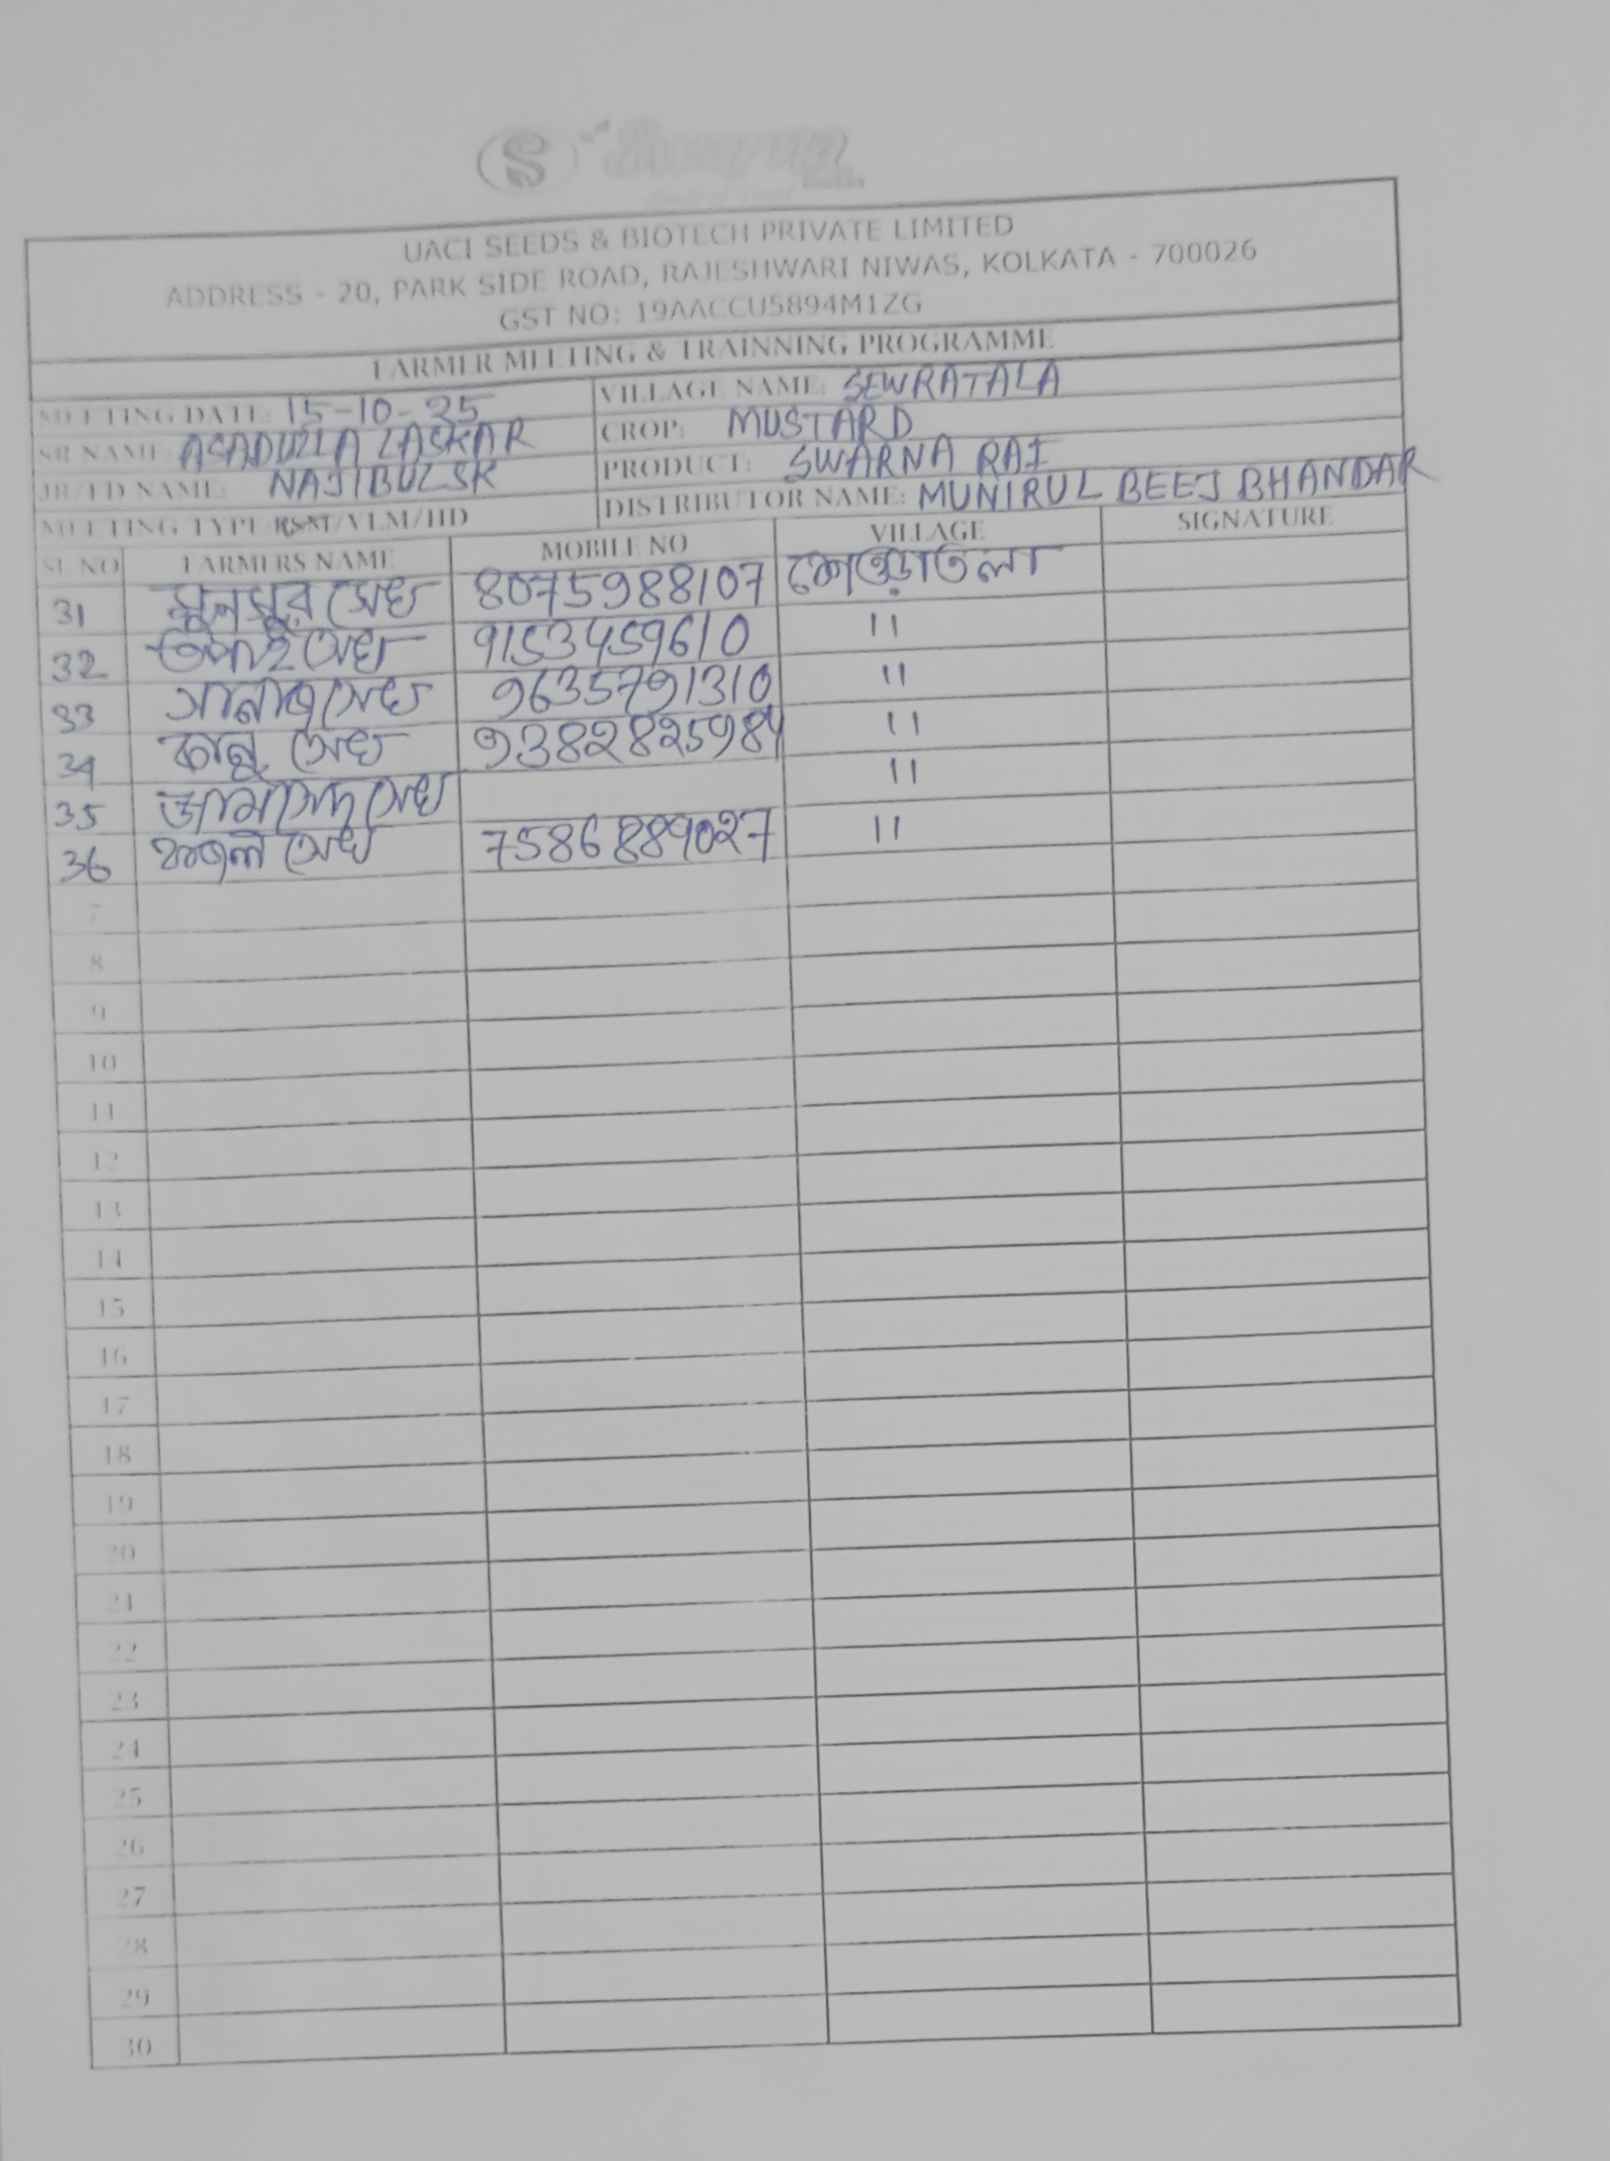 S
UACI SEEDS & BIOTECH PRIVATE LIMITED
ADDRESS - 20, PARK SIDE ROAD, RAJESHWARI NIWAS, KOLKATA - 700026
GST NO: 19AACCU5894M1ZG
FARMER MEETING & TRAINNING PROGRAMME
MEETING DATE: 15-10-25 VILLAGE NAME: SEWRATALA
SR NAME: ASADULLA LASKAR CROP: MUSTARD
JR/FD NAME: NAJIBUL SK PRODUCT: SWARNA RAI
MEETING TYPE RSM/VLM/HD DISTRIBUTOR NAME: MUNIRUL BEEJ BHANDAR
SL NO FARMERS NAME MOBILE NO VILLAGE SIGNATURE
31 মুনসুর সেখ 8075988107 শেওড়াতলা
32 সেখ 9153459610 "
33 সেখ 9635791310 "
34 কালু সেখ 9382825984 "
35 সেখ "
36 ফজলী সেখ 7586889027 "
7
8
9
10
11
12
13
14
15
16
17
18
19
20
21
22
23
24
25
26
27
28
29
30